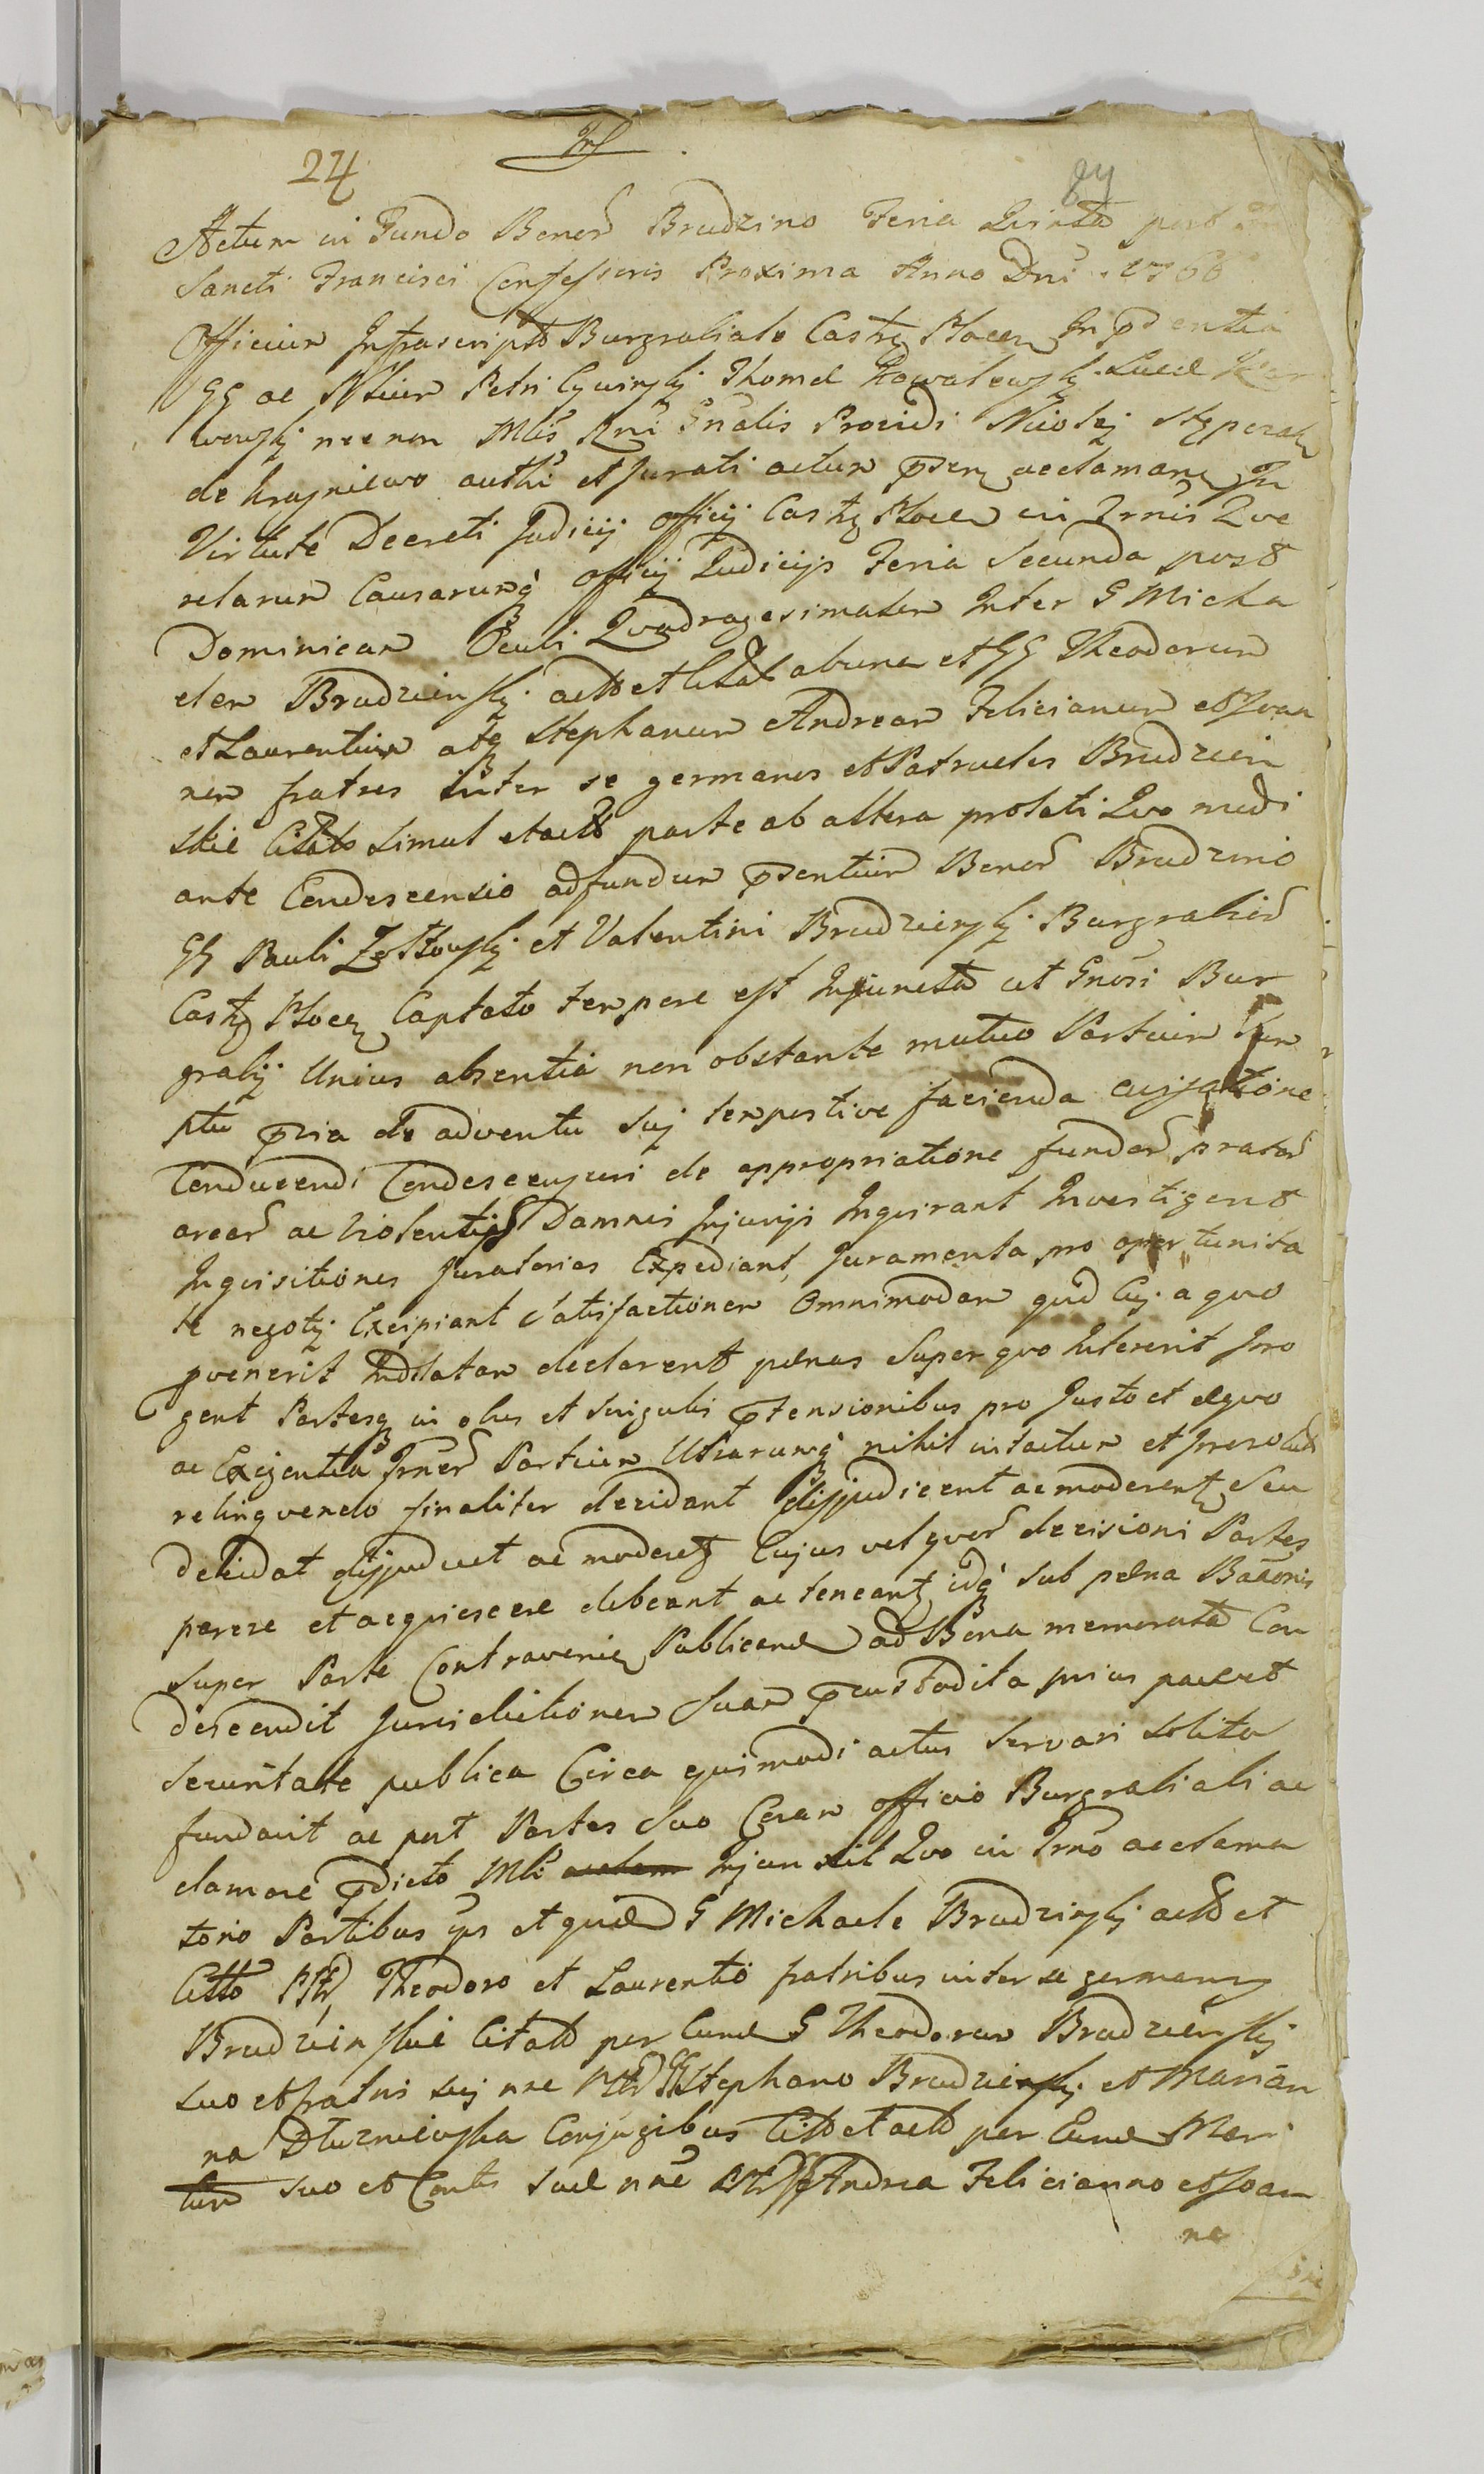 24
84
Actum in Fundo Bonor Brudzino Feria Quinta post
Sancti Francisci Confessoris Proxima Anno Dni 1766
Officium Infrascripto Burgrabiale Castr Plocen In pdentia
GG ac Nlium Petri Cywinskj Thomæ Kowalewskj Lucæ
wewskj nec non Mlis Rni Gnalis Providi Nicolj
de Krajniewo authi et Jurati actum psen acclamanm In
Virtute Decreti Judicij officij Castr Plocen in Trnis Que
relarum Causarumq officij Judicijs Feria Secunda post
Dominicam Oculi Quadragesimalem Inter G Micha
elem Brudzinskj actto et Citat ab una et GG Theodorum
et Laurentium atq Stephanum Andream Felicianum et Joan
nem fratres inter se germanos et Patrueles Brudzin
skie Citato simul et actto parte ab altera prolati Quo medi
ante Condescensio ad fundum pdentium Bonor Brudzino
GG Pauli Zoltowskj et Valentini Brudzinskj Burgrabior
Castr Plocen Captato tempore est Injuncta ut Gnosi Bur
grabij Unius absentia non obstante mutuo Partium Sum
ptu pvia de adventu suj tempestive facienda
Conducendi Condescensuri de appropriatione fundor prator
arear ac violentijs Damnis Injurijs Inquirant Investigent
Inquisitiones Juratorias Expediant Juramenta pro opportunita
te negotij Excipiant Satisfactionem Omnimodam quid Cuj a quo
pvenerit Indilatam declarent pænas super quo Intererit Irro
gent Partesq in olbus et singulis ptensionibus pro Justo et æquo
ac Exigentia Jrner Partium Utrarumq nihil intactum et Irresolut
relinquendo finaliter decidant dijudicent ac moderent seu
decidat dijudicet ac moderet Cujus vel quor decisioni Partes
parere et acquiescere debeant ac teneant idq sub pæna Banonis
super Parte Contravenien Publicand ad Bona memorata Con
descendit Jurisdictionem Suam pcustodita prius pace et
securitate publica Circa ejusmodi actus servari solita
fundavit ac post Partes suo Coram officio Burgrabiali ac
clamare pdicto Mli Injunxit Quo in Trno acclama
torio Partibus ips et quid G Michaele Brudzinskj actto et
Citto Theodoro et Laurentio fratribus inter se germanis
Brudzinskie Citatto per Eund G Theodorum Brudzinskj
suo et fratris suj nne Stephano Brudzinskj et Marian
na Dłuzniewska Conjugibus Citto et actto per Eund Mari
tum suo et Contis suæ nne Andrea Felicianno et Joan
ne